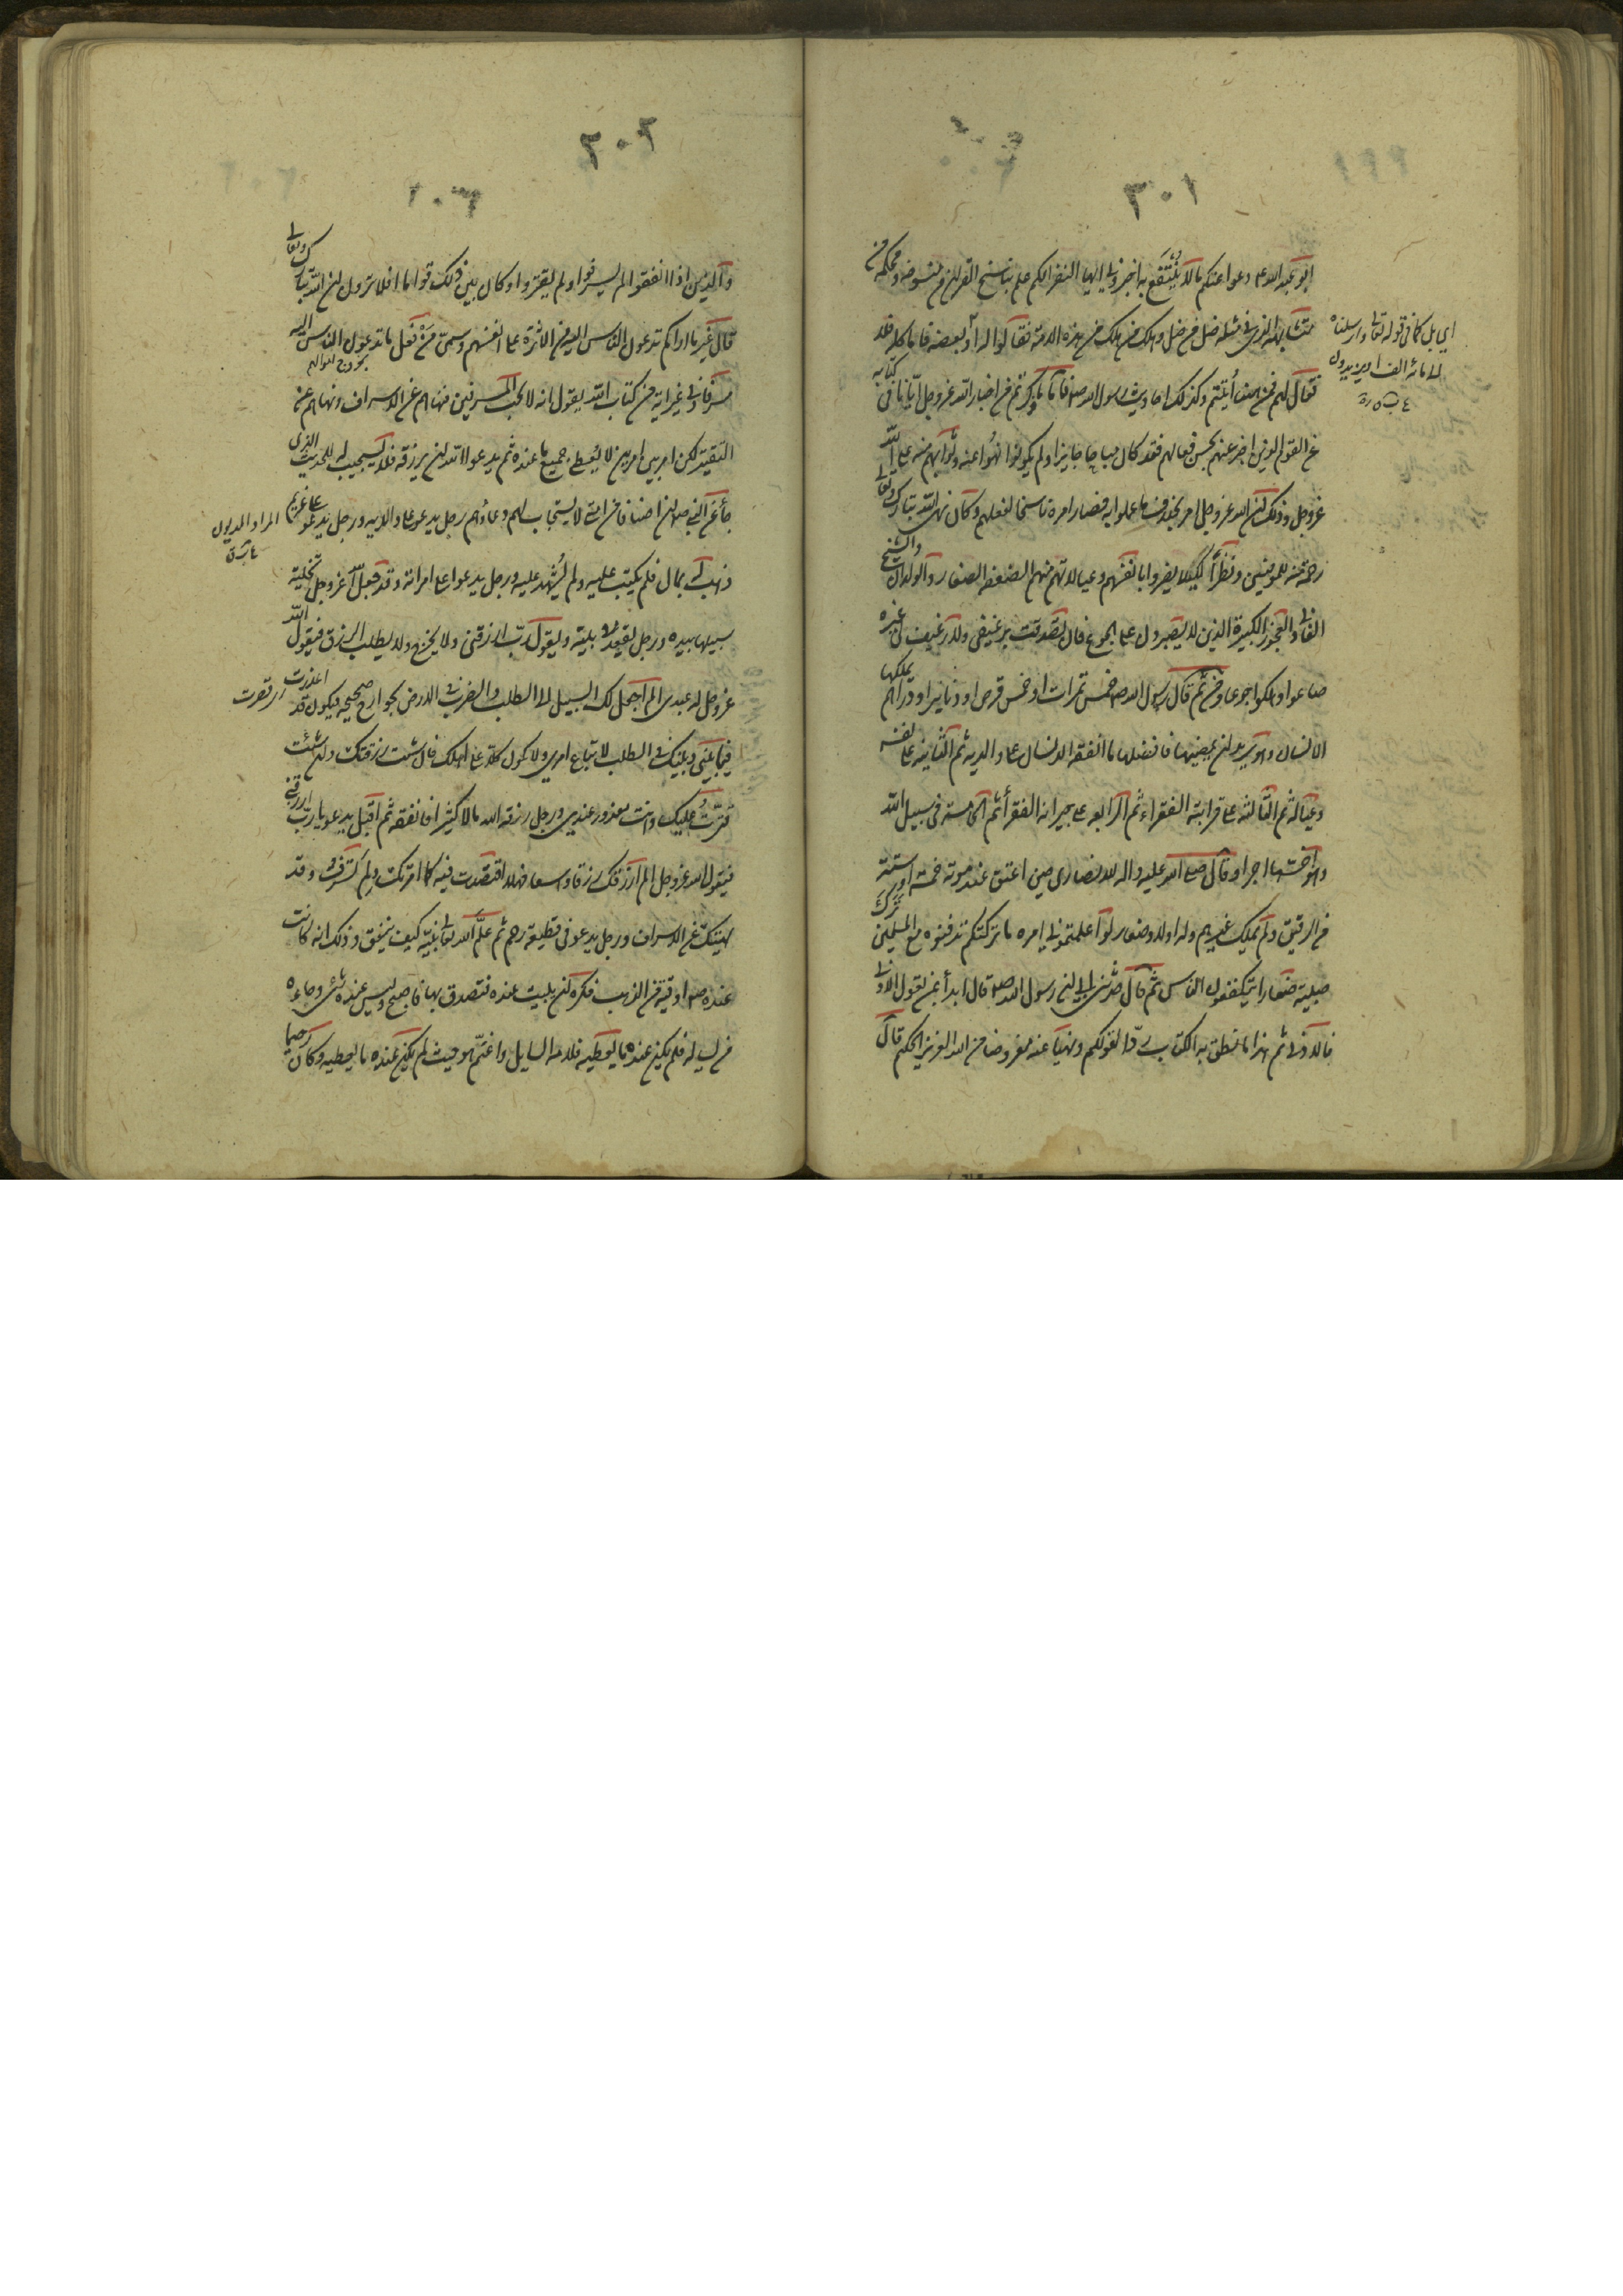 ٣٠١
ابو عبد الله ع دعوا عنكم ما لا ينتفع به اخبروني ايها النفر الكم علم بناسخ القران من منسوخه ومحكمه من
متشابهه الذي في مثله ضل من ضل وهلك من هلك من هذه الامة فقالوا له او بعضه فاما كله فلا
فقال لهم فمن هنا أتيتم وكذلك احاديث رسول الله ص فاما ما ذكرتم من اخبار الله عز وجل ايانا في كتابه
عن القوم الذين اخبر عنهم بحسن فعالهم فقد كان مباحا جايزا ولم يكونوا نهوا عنه وثوابهم منه على الله
عز وجل وذلك ان الله عز وجل امر بخلاف ما عملوا به فصار امره ناسخا لفعلهم وكان نهى الله تبارك وتعالى
رحمة منه للمؤمنين ونظرا لكيلا يضروا بانفسهم وعيالاتهم منهم الضعفة الصغار والولدان والشيخ
الفاني والعجوز الكبيرة الذين لا يصبرون على الجوع فان تصدقت برغيفي ولا رغيف لي غيره
ضاعوا وهلكوا جوعا فمن ثم قال رسول الله ص خمس تمرات او خمس قرص او دنانير او دراهم يملكها
الانسان وهو يريد ان يمضيها فافضلها ما انفقه الانسان على والديه ثم الثانية على نفسه
وعياله ثم الثالثة على قرابته الفقراء ثم الرابعة على جيرانه الفقراء ثم الخامسة في سبيل الله
وهو اخسها اجرا وقال صلى الله عليه واله للانصاري حين اعتق عند موته خمسة او ستة
من الرقيق ولم يملك غيرهم وله اولاد صغار لو اعلمتموني امره ما تركتكم تدفنوه مع المسلمين ترك
صبية صغارا يتكففون الناس ثم قال حدثني ابي ان رسول الله ص قال ابدأ بمن تعول الادنى
فالادنى ثم هذا ما نطق به الكتاب ردا لقولكم ونهيا عنه مفروضا من الله العزيز الحكيم قال
اي بل كما في قوله تعالى وارسلناه
الى مائة الف او يزيدون
٣٠٢
والذين اذا انفقوا لم يسرفوا ولم يقتروا وكان بين ذلك قواما افلا ترون ان الله تبارك وتعالى
قال غير ما اراكم تدعون الناس اليه من الاثرة على انفسهم وسمى من فعل ما تدعون الناس اليه
مسرفا وفي غير اية من كتاب الله يقول انه لا يحب المسرفين فنهاهم عن الاسراف ونهاهم عن
التقتير لكن امر بين امرين لا يعطي جميع ما عنده ثم يدعو الله ان يرزقه فلا يستجيب له للحديث الذي
جاء عن النبي ص ان اصنافا من امتي لا يستجاب لهم دعاؤهم رجل يدعو على والديه ورجل يدعو على غريم
ذهب له بمال فلم يكتب عليه ولم يشهد عليه ورجل يدعوا على امراته وقد جعل الله عز وجل تخلية
سبيلها بيده ورجل يقعد في بيته ويقول رب ارزقني ولا يخرج ولا يطلب الرزق فيقول الله
عز وجل له عبدي الم اجعل لك السبيل الى الطلب والضرب في الارض بجوارح صحيحه فيكون قد اعذرت
فيما بيني وبينك في الطلب لاتباع امري ولا تكون كلا على اهلك فان شئت رزقتك وان شئت
قترت عليك وانت معذور عندي ورجل رزقه الله مالا كثيرا فانفقه ثم اقبل يدعو يا رب ارزقني
فيقول الله عز وجل الم ارزقك رزقا واسعا فهلا اقتصدت فيه كما امرتك ولم تسرف وقد
نهيتك عن الاسراف ورجل يدعو في قطيعة رحم ثم علم الله تعالى نبيه كيف ينفق وذلك انه كانت
عنده ص اوقية من الذهب فكره ان يبيت عنده فتصدق بها فاصبح وليس عنده شئ وجاءه
من يساله فلم يكن عنده ما يعطيه فلامه السايل واغتم هو حيث لم يكن عنده ما يعطيه وكان رحيما
المراد المديون